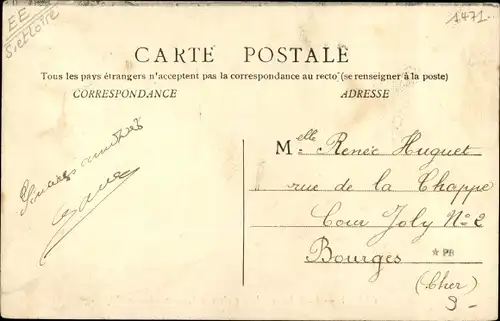 EE
S. et Loire
1471.
CARTE POSTALE
Tous les pays étrangers n'acceptent pas la correspondance au recto (se renseigner à la poste)
CORRESPONDANCE
ADRESSE
Sincères amitiés
Melle Renée Huguet
rue de la Chappe
Cour Joly No 2
Bourges
* PB
(Cher)